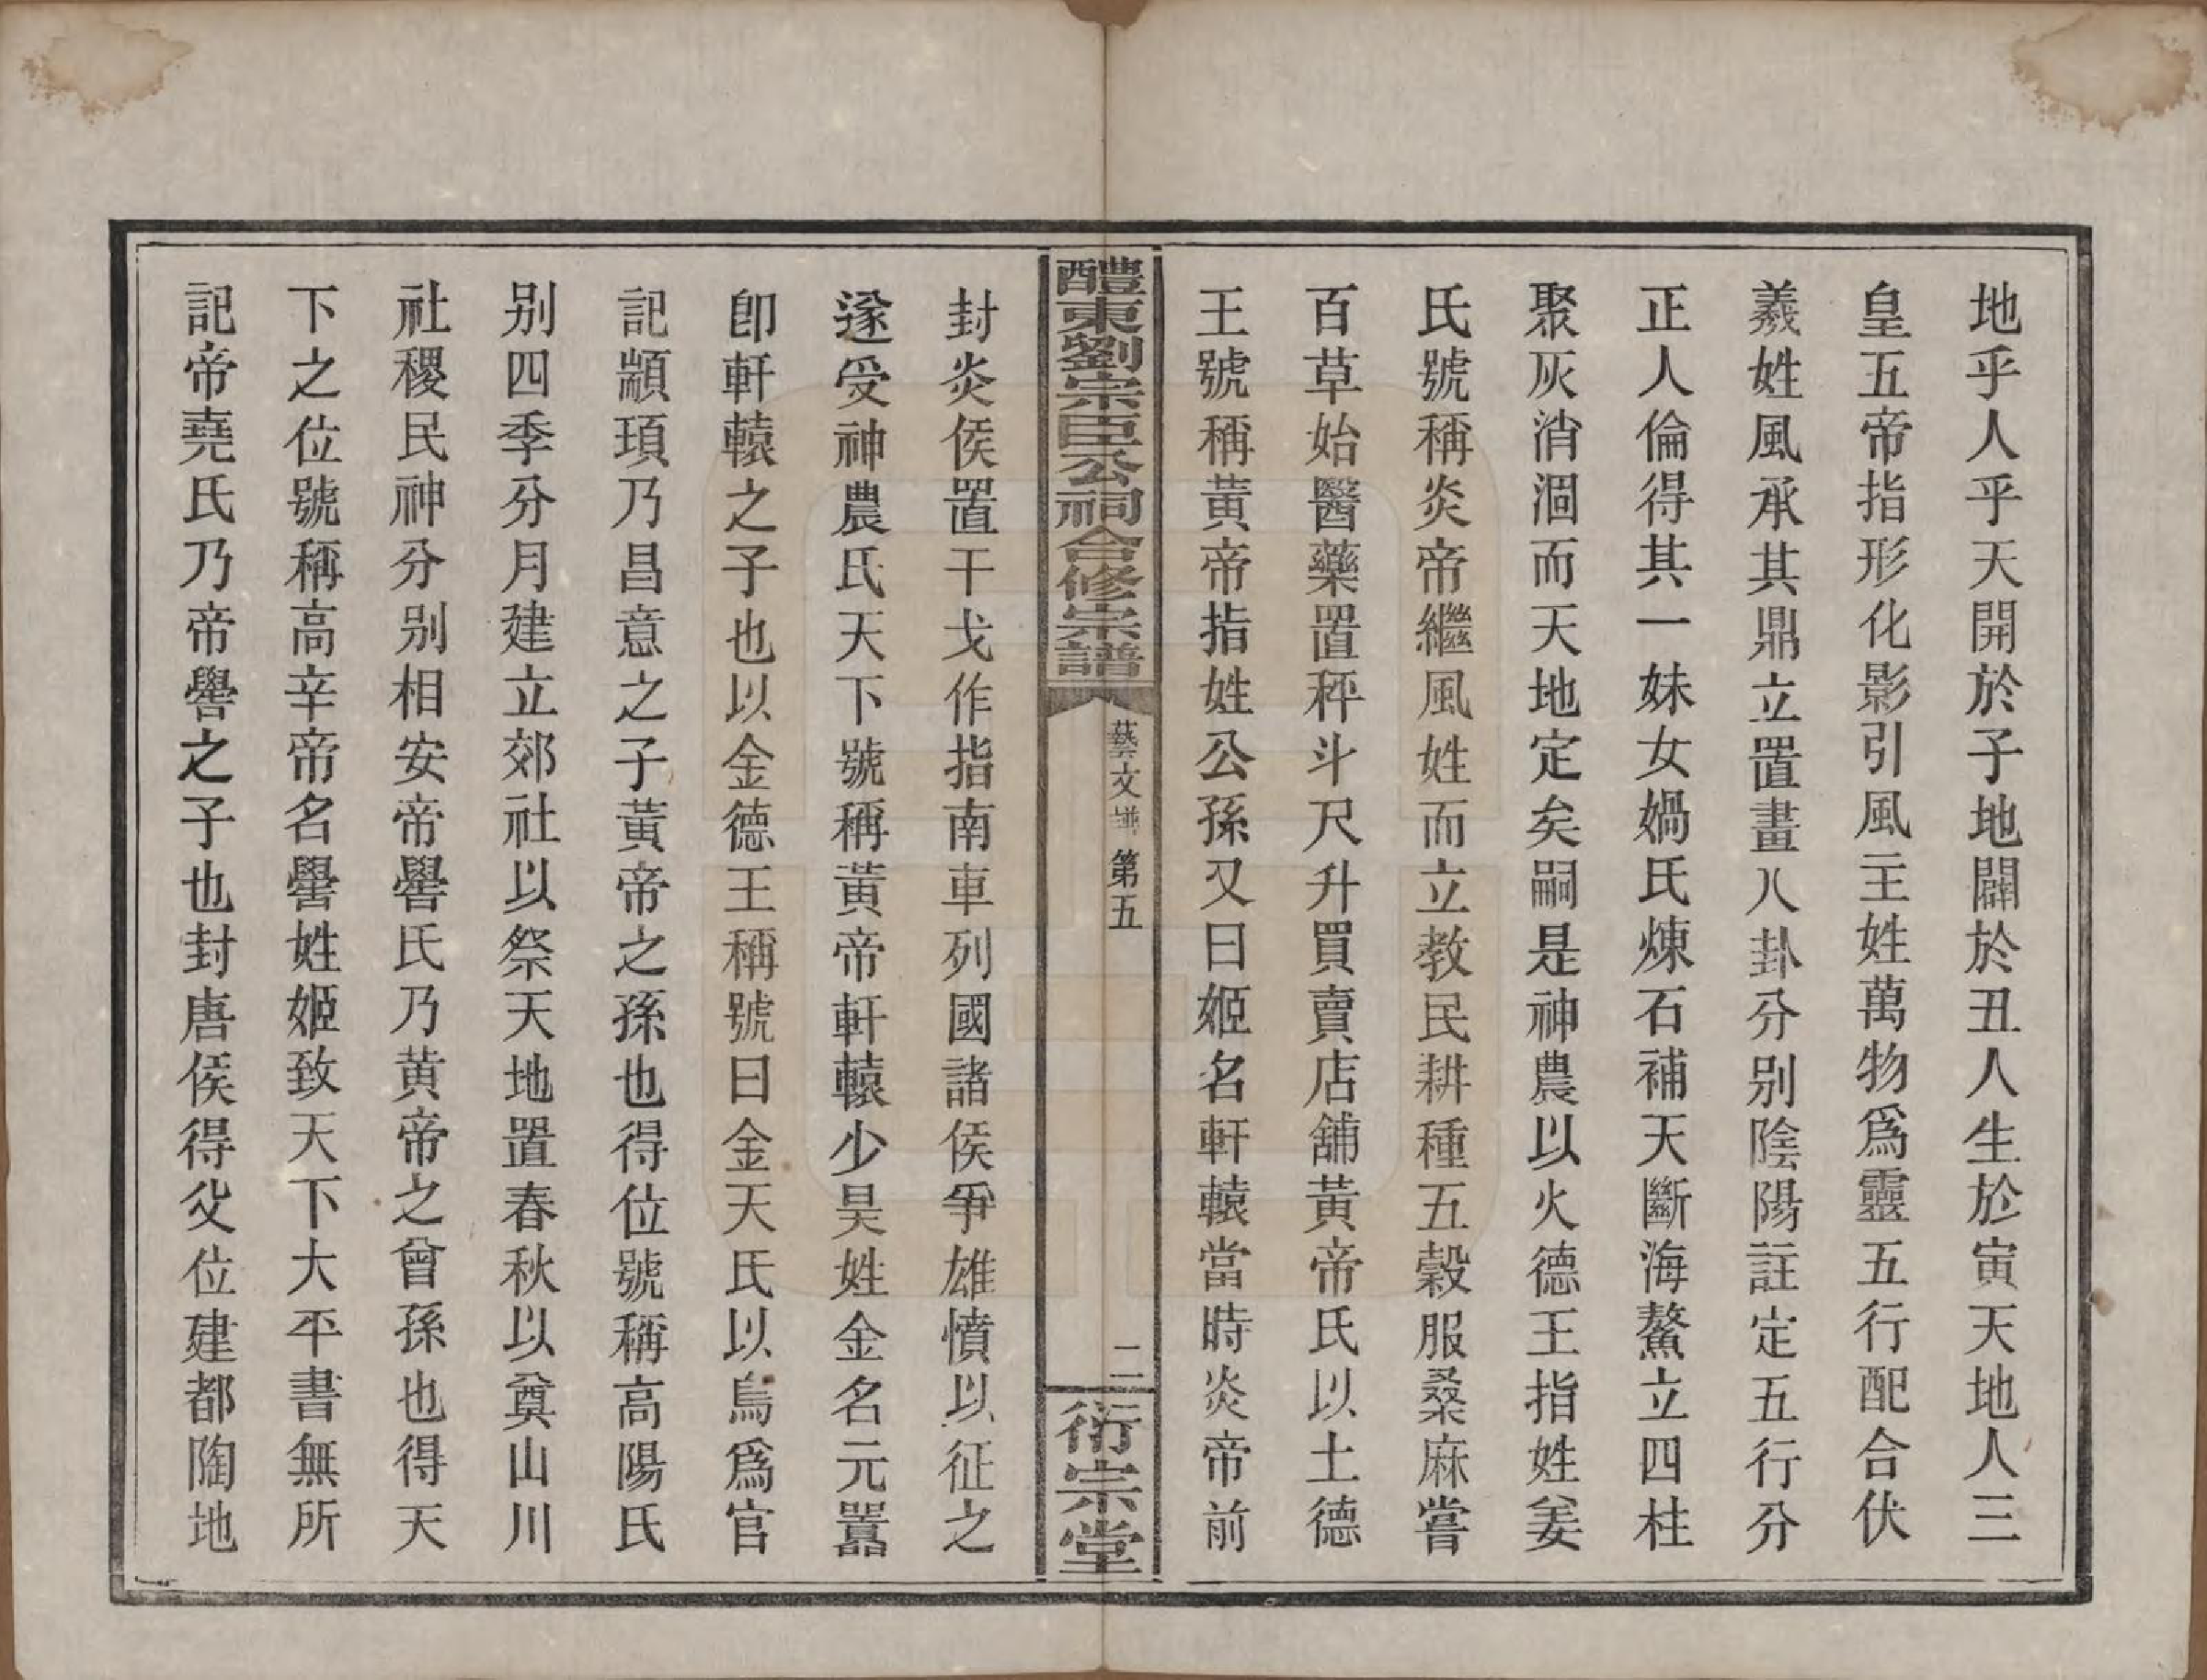 地乎人乎天開於子地闢於丑人生於寅天地人三
皇五帝指形化影引風主姓萬物爲靈五行配合伏
羲姓風承其鼎立置畫八卦分别陰陽註定五行分
正人倫得其一妹女媧氏煉石補天斷海鰲立四柱
聚灰消涸而天地定矣嗣是神農以火德王指姓姜
氏號稱炎帝繼風姓而立教民耕種五穀服桑麻嘗
百草始醫藥置秤斗尺升買賣店舖黃帝氏以土德
王號稱黃帝指姓公孫又曰姬名軒轅當時炎帝前
醴東劉宗臣公祠合修宗譜
藝文 第五
二
衍宗堂
封炎侯置干戈作指南車列國諸侯爭雄憤以征之
遂受神農氏天下號稱黃帝軒轅少昊姓金名元囂
卽軒轅之子也以金德王稱號曰金天氏以鳥爲官
記顓頊乃昌意之子黃帝之孫也得位號稱高陽氏
别四季分月建立郊社以祭天地置春秋以奠山川
社稷民神分别相安帝嚳氏乃黃帝之曾孫也得天
下之位號稱高辛帝名嚳姓姬致天下大平書無所
記帝堯氏乃帝嚳之子也封唐侯得父位建都陶地